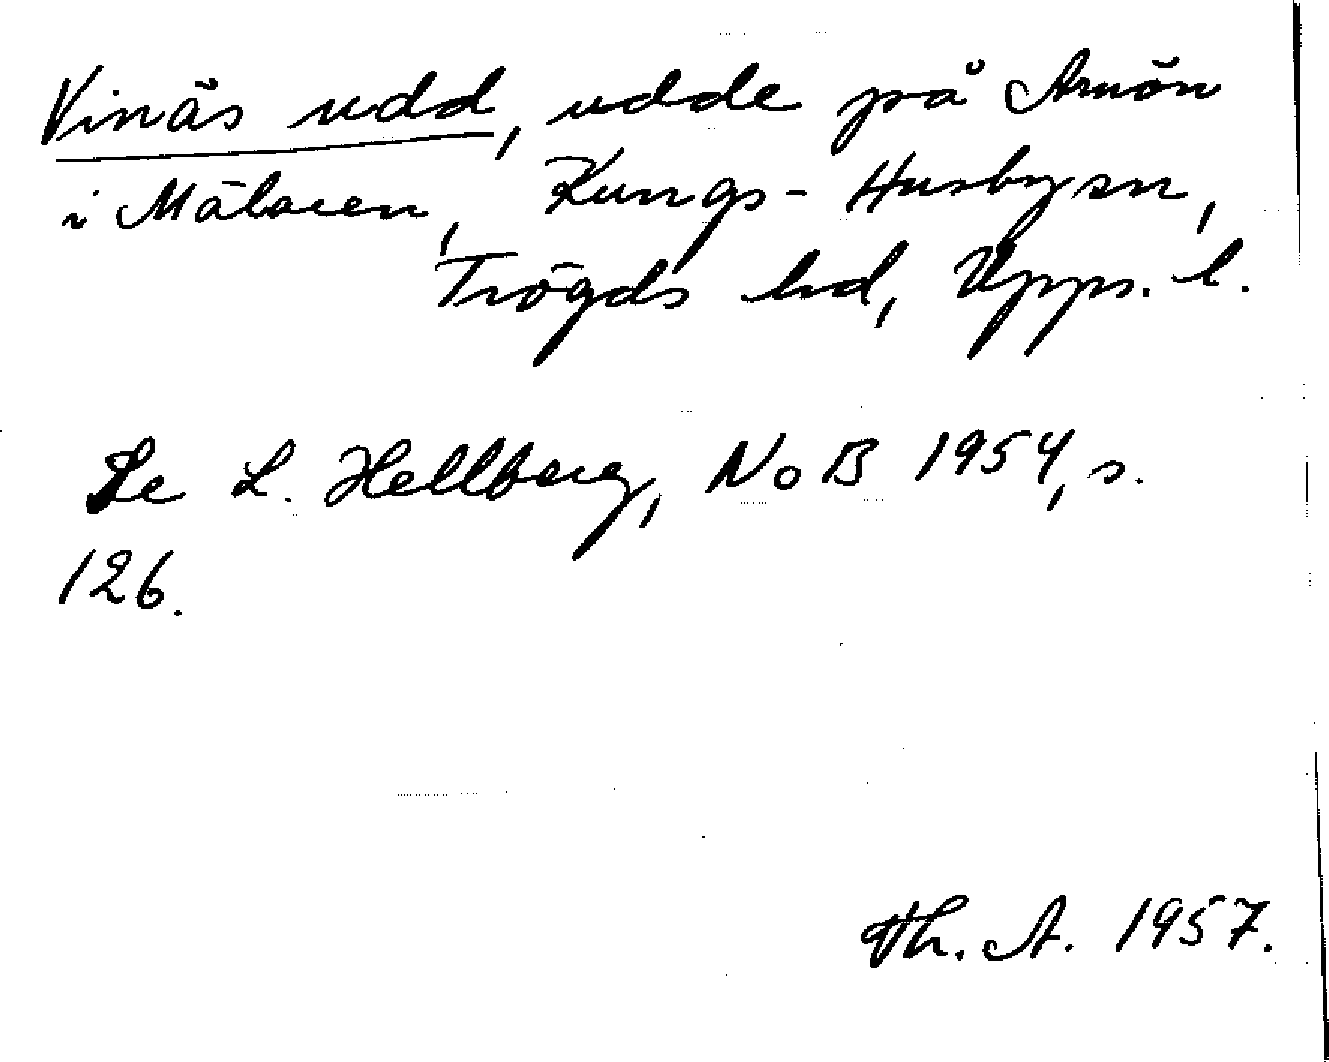 Vinäs udd, udde på Arnön
i Mälaren, Kungs-Husby sn,
Trögds hd, Upps. l.
Se L. Hellberg, NoB 1954, s.
126.
Th. A. 1957.